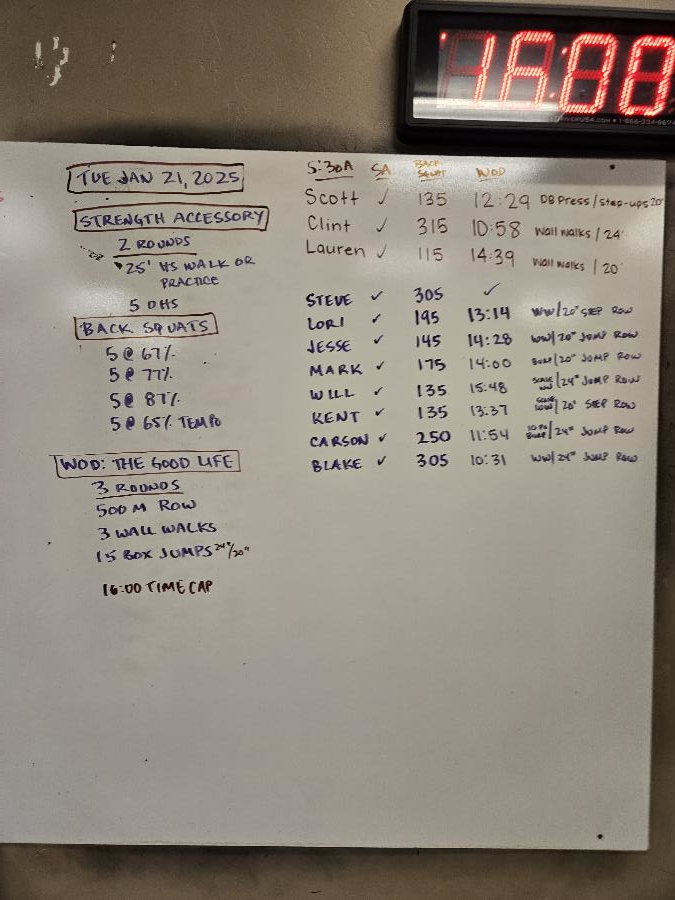 16:00
TUE JAN 21, 2025
STRENGTH ACCESSORY
2 ROUNDS
25' HS WALK OR
PRACTICE
5 OHS
BACK SQUATS
5 @ 67%
5 @ 77%
5 @ 87%
5 @ 65% TEMPO
WOD: THE GOOD LIFE
3 ROUNDS
500 M ROW
3 WALL WALKS
15 BOX JUMPS 24"/20"
16:00 TIME CAP
5:30A SA BACK SQUAT WOD
Scott ✓ 135 12:29 DB Press/step-ups 20"
Clint ✓ 315 10:58 Wall walks / 24"
Lauren ✓ 115 14:39 Wall walks / 20"
STEVE ✓ 305 ✓
LORI ✓ 195 13:14 WW/20" STEP ROW
JESSE ✓ 145 14:28 WW/20" JUMP ROW
MARK ✓ 175 14:00 BURP/20" JUMP ROW
WILL ✓ 135 15:48 SCALE WW/24" JUMP ROW
KENT ✓ 135 13:37 SCALE WW/20" STEP ROW
CARSON ✓ 250 11:54 /24" JUMP ROW
BLAKE ✓ 305 10:31 WW/24" JUMP ROW